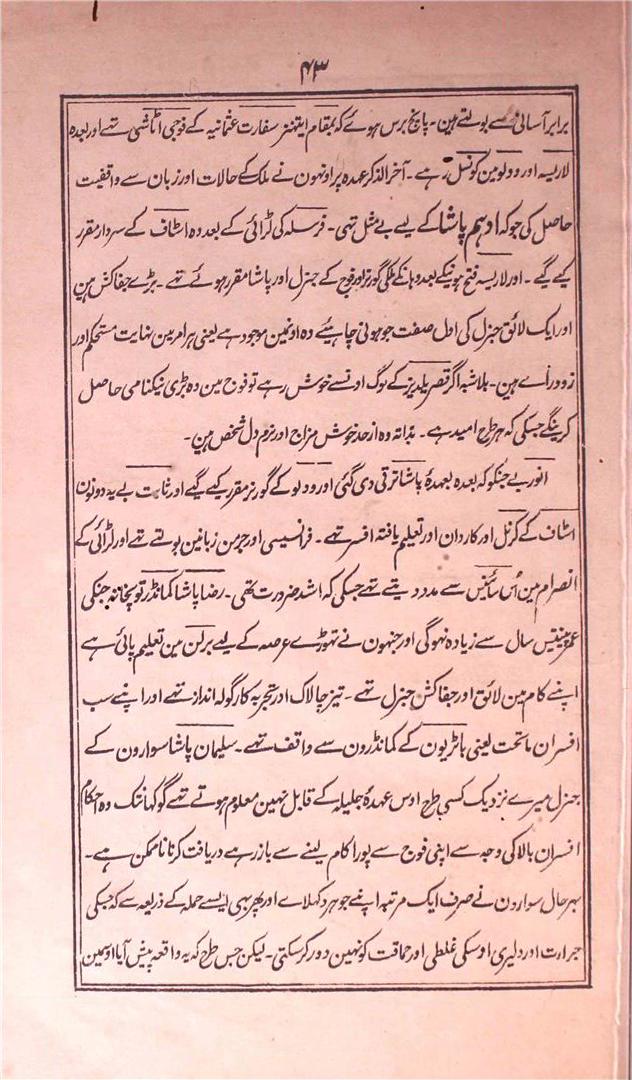 ۴۳
برابر آسانی سے بولتے ہین۔ پانچ برس ہوئے کہ بمقام ایتھنز سفارت عثمانیہ کے فوجی اتاشی تھے اور بعدہ
لاریسہ اور وولو مین کونسل رہے۔ آخر الذکر عہدہ پر اونہون نے ملک کے حالات اور زبان سے واقفیت
حاصل کی جو کہ ادہم پاشا کے لیے بے مثل تھی۔ فرسلہ کی لڑائی کے بعد وہ اسٹاف کے سردار مقرر
کیے گیے۔ اور لاریسہ فتح ہونیکے بعد وہانکے ملکی گورنر اور فوج کے جنرل اور پاشا مقرر ہوئے تھے۔ بڑے جفاکش ہین
اور ایک لائق جنرل کی اول صفت جو ہونی چاہیئے وہ اونمین موجود ہے یعنی ہر امر مین نہایت مستحکم اور
زود رائے ہین۔ بلاشبہ اگر قصر یلدیز کے لوگ اونسے خوش رہے تو فوج مین وہ بڑی نیکنامی حاصل
کرینگے جسکی کہ ہر طرح امید ہے۔ بذاتہ وہ از حد خوش مزاج اور نرم دل شخص ہین۔
انور بے جنکو کہ بعدہ بعہدۂ پاشا ترقی دی گئی اور وولو کے گورنر مقرر کیے گیے اور ثابت بے یہ دونون
اسٹاف کے کرنل اور کاردان اور تعلیم یافتہ افسر تھے۔ فرانسیسی اور جرمن زبانین بولتے تھے اور لڑائی کے
انصرام مین اُس سائنس سے مدد دیتے تھے جسکی کہ اشد ضرورت تھی۔ رضا پاشا کمانڈر توپخانہ جنکی
عمر پینتیس سال سے زیادہ نہوگی اور جنہون نے تھوڑے عرصہ کے لیے برلن مین تعلیم پائی ہے
اپنے کام مین لائق اور جفاکش جنرل تھے۔ تیز چالاک اور تجربہ کار گولہ انداز تھے اور اپنے سب
افسران ماتحت یعنی باٹریون کے کمانڈرون سے واقف تھے۔ سلیمان پاشا سوارون کے
جنرل میرے نزدیک کسی طرح اوس عہدۂ جلیلہ کے قابل نہین معلوم ہوتے تھے گو کہانتک وہ احکام
افسران بالا کی وجہ سے اپنی فوج سے پورا کام لینے سے باز رہے دریافت کرنا ناممکن ہے۔
بہر حال سوارون نے صرف ایک مرتبہ اپنے جوہر دکہلاے اور پھر بھی ایسے حملہ کے ذریعہ سے کہ جسکی
جرارت اور دلیری اوسکی غلطی اور حماقت کو نہین دور کر سکتی۔ لیکن جس طرح کہ یہ واقعہ پیش آیا اوسمین